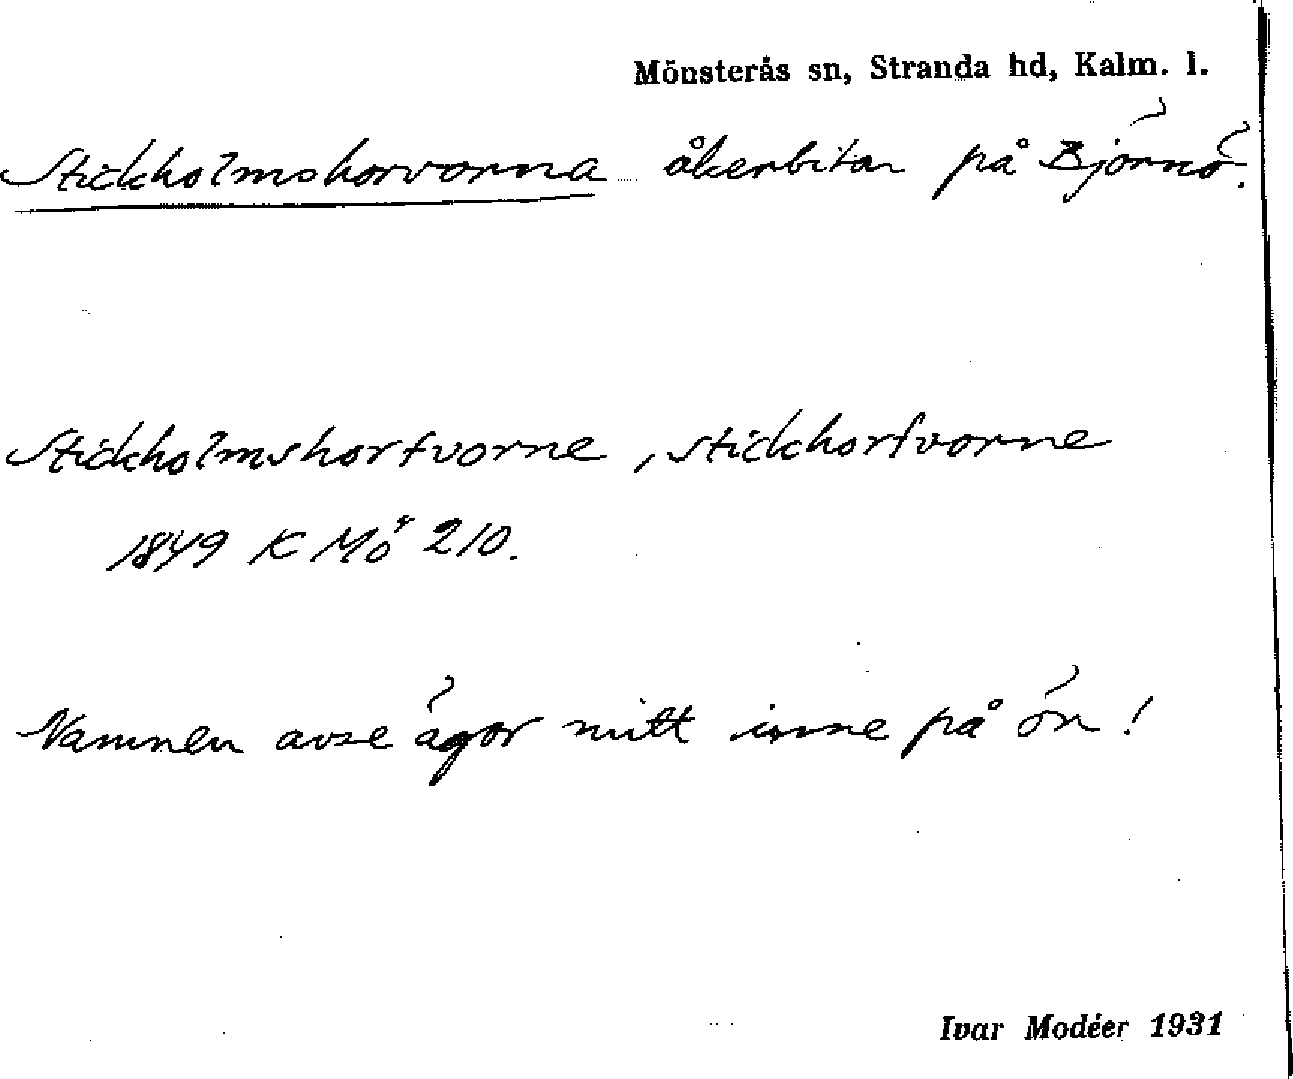 Mönsterås sn, Stranda hd, Kalm. l.
Stickholmshorvorna åkerbitar på Björnö.
Stickholmshorfvorne, stickhorfvorne
1849 K Mö 210.
Namnen avse ägor mitt inne på ön!
Ivar Modéer 1931